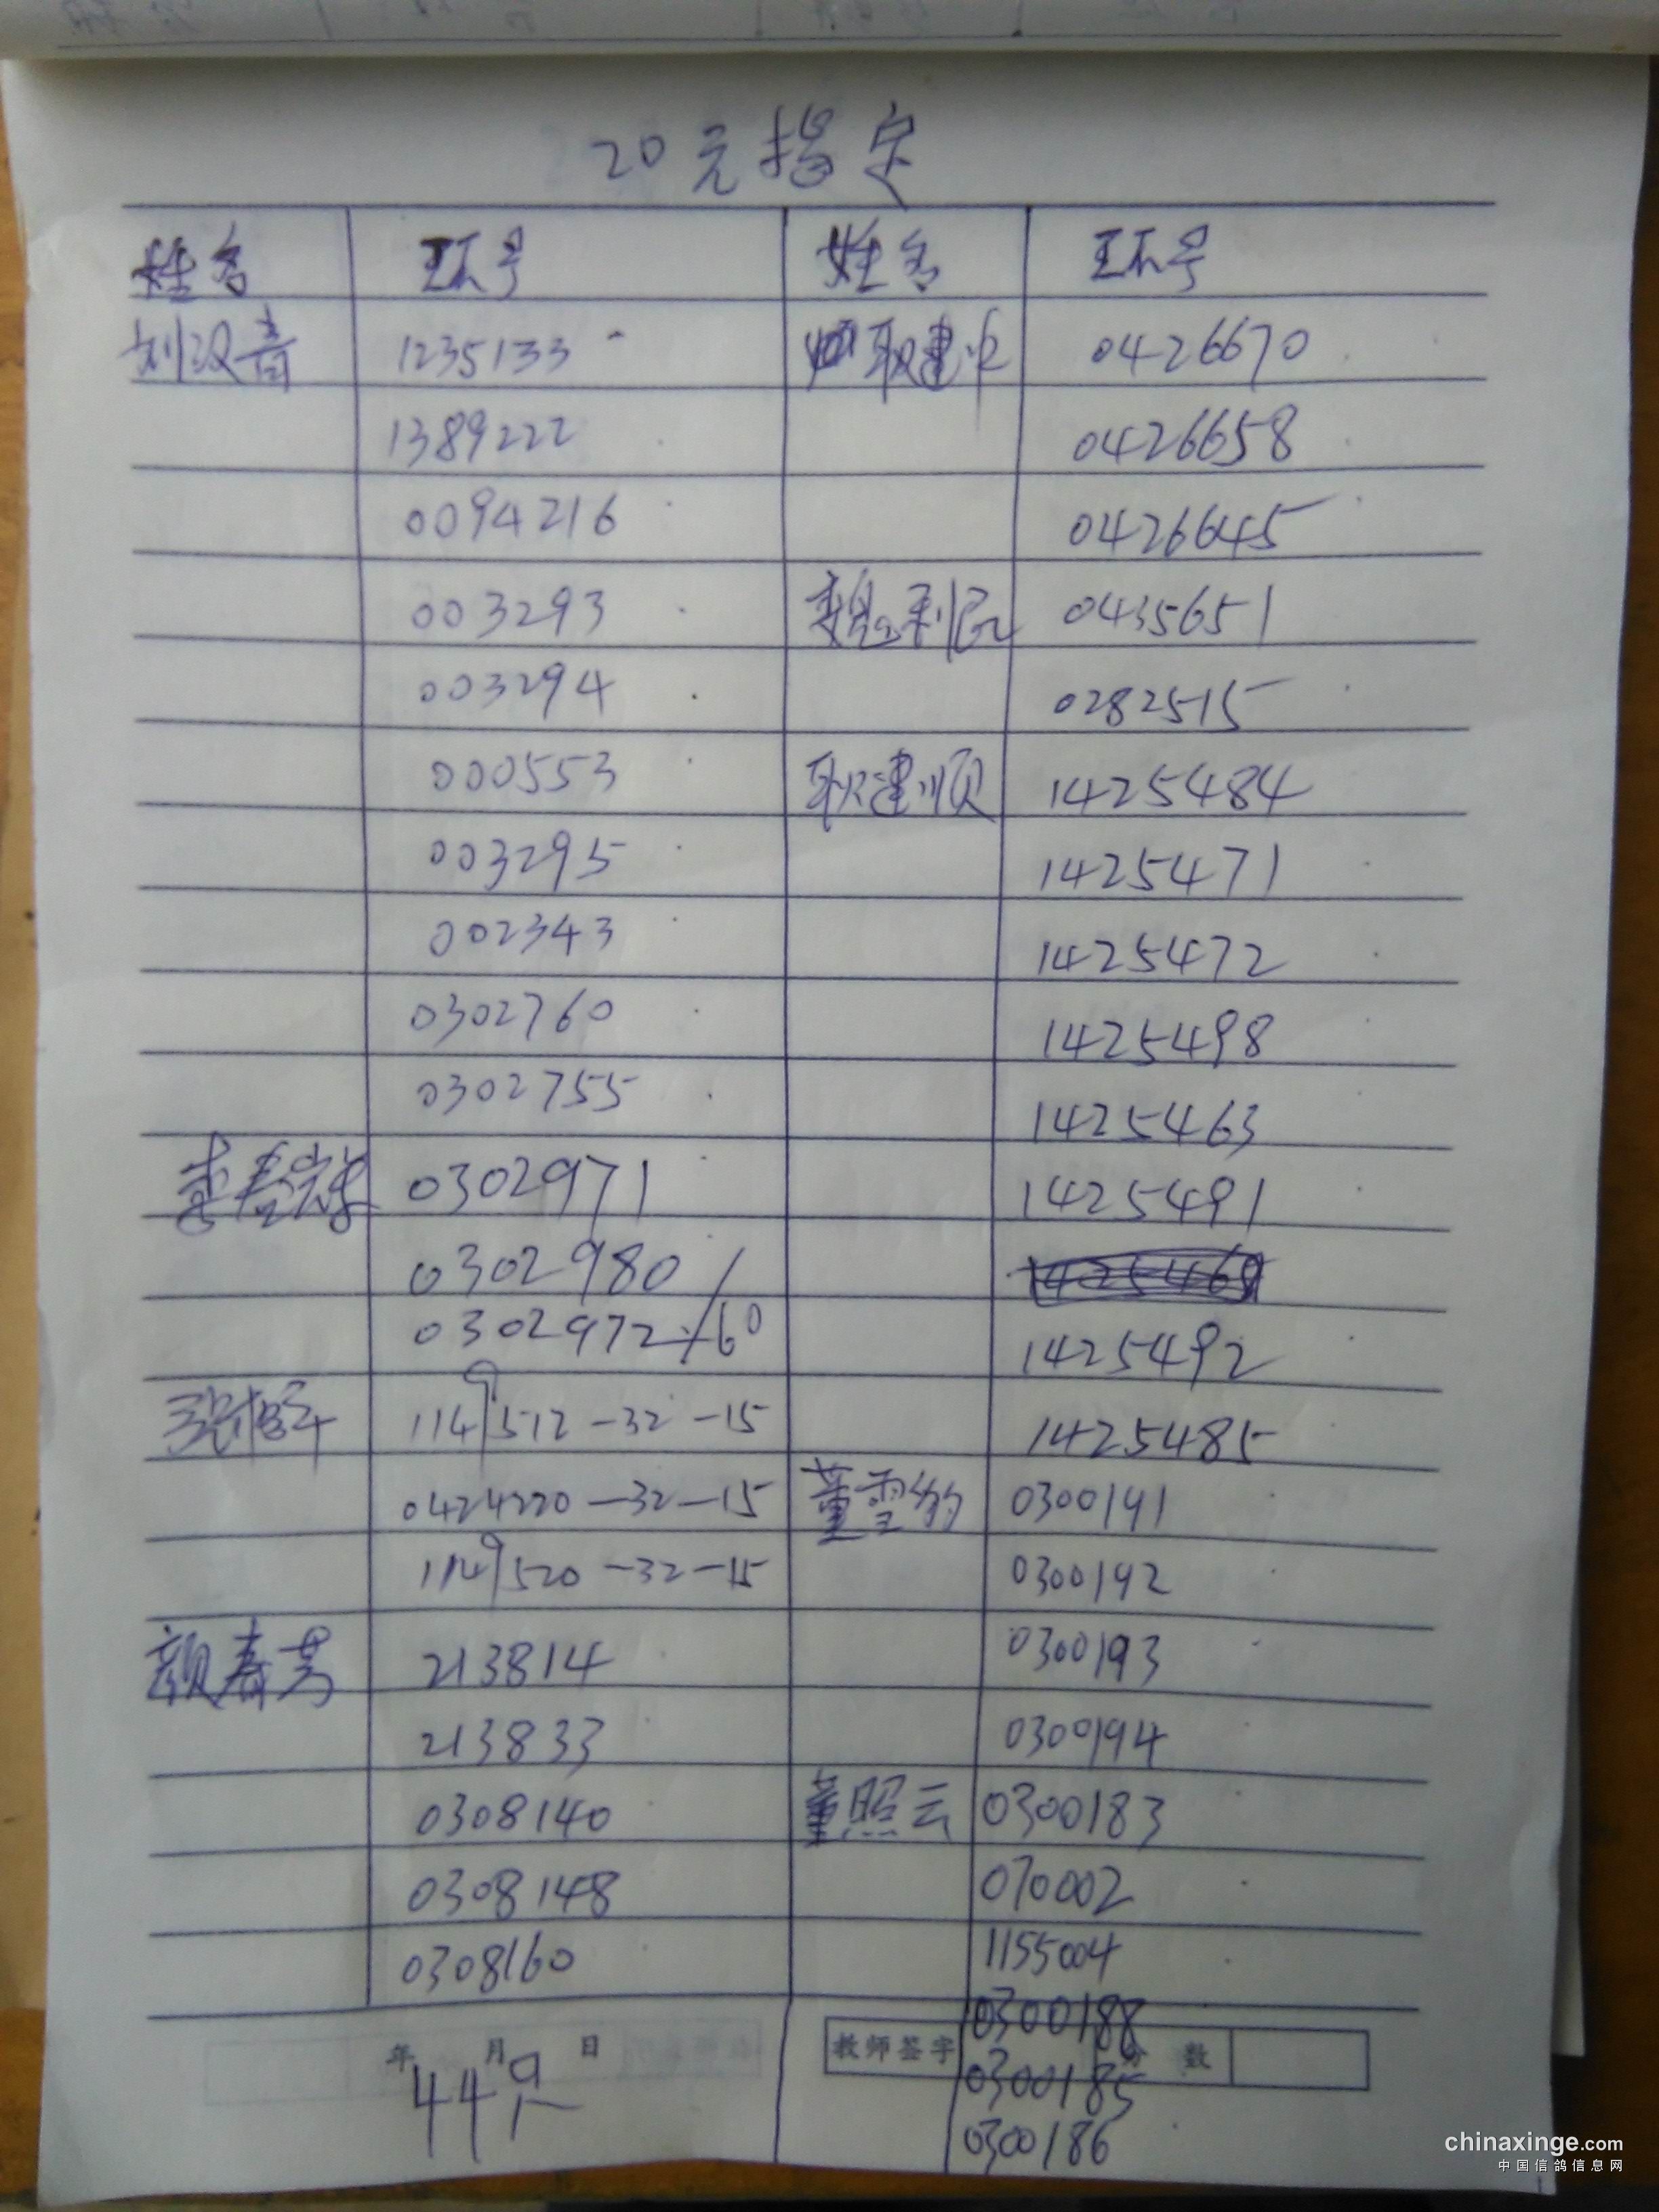 20元指定
姓名 环号 姓名 环号
刘汉青 1235133 耿建 0426670
1389222 0426658
0094216 0426645
003293 魏利民 0435651
003294 0282515
000553 耿建顺 1425484
003295 1425471
002343 1425472
0302760 1425498
0302755 1425463
李春祥 0302971 1425491
0302980
0302972 60 1425492
1149512-32-15 1425485
0424220-32-15 董雪豹 0300191
1149520-32-15 0300192
颜春芳 213814 0300193
213833 0300194
0308140 董照云 0300183
0308148 070002
0308160 1155004
0300188
年 月 日 教师签字 分 数
44只 0300185
0300186
chinaxinge.com
中国信鸽信息网